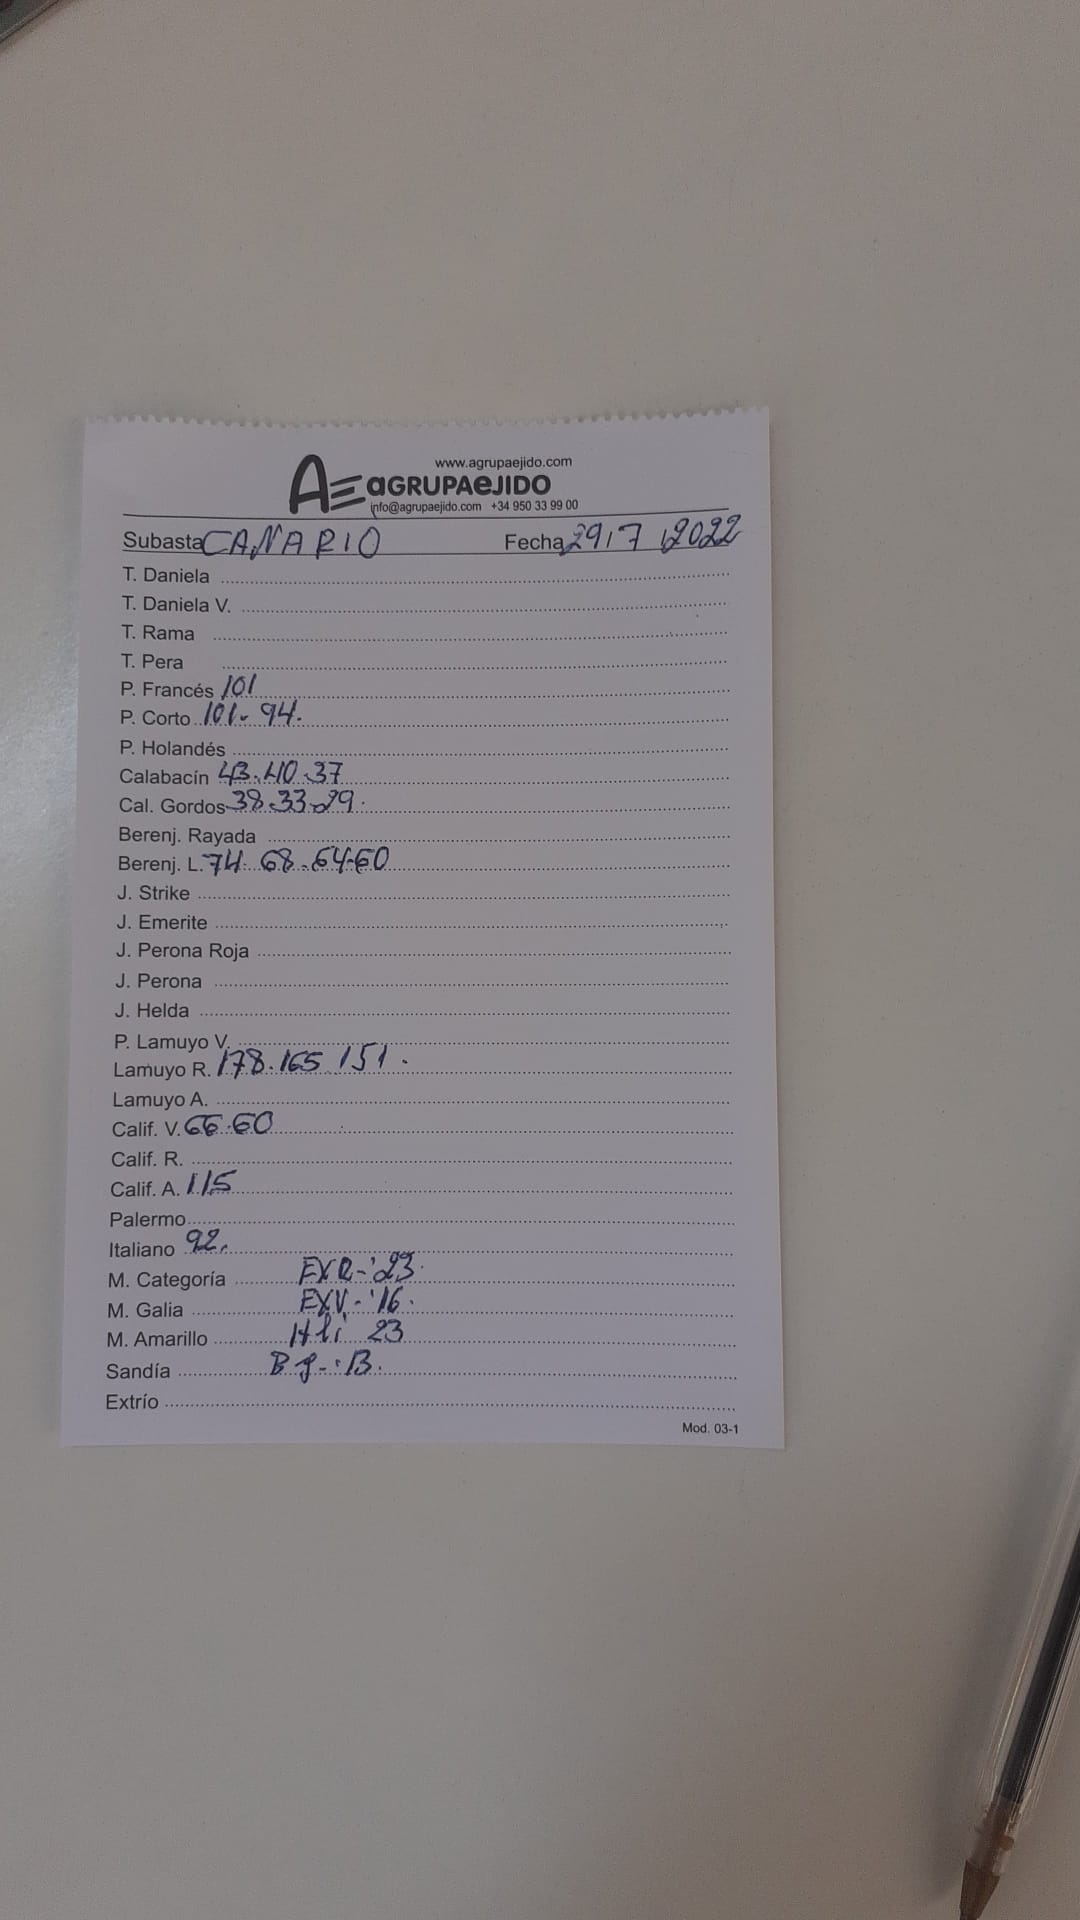 www.agrupaejido.com
AE aGRUPAeJIDO
info@agrupaejido.com +34 950 33 99 00
Subasta CANARIO Fecha 29/7/2022
T. Daniela
T. Daniela V.
T. Rama
T. Pera
P. Francés 101
P. Corto 101-94.
P. Holandés
Calabacín 43.40.37
Cal. Gordos 38.33-29.
Berenj. Rayada
Berenj. L. 74.68.64-60
J. Strike
J. Emerite
J. Perona Roja
J. Perona
J. Helda
P. Lamuyo V.
Lamuyo R. 178.165 151.
Lamuyo A.
Calif. V. 66.60
Calif. R.
Calif. A. 115
Palermo
Italiano 92.
M. Categoría EXR-'23.
M. Galia EXV.-'16.
M. Amarillo 23
Sandía
Extrío
Mod. 03-1